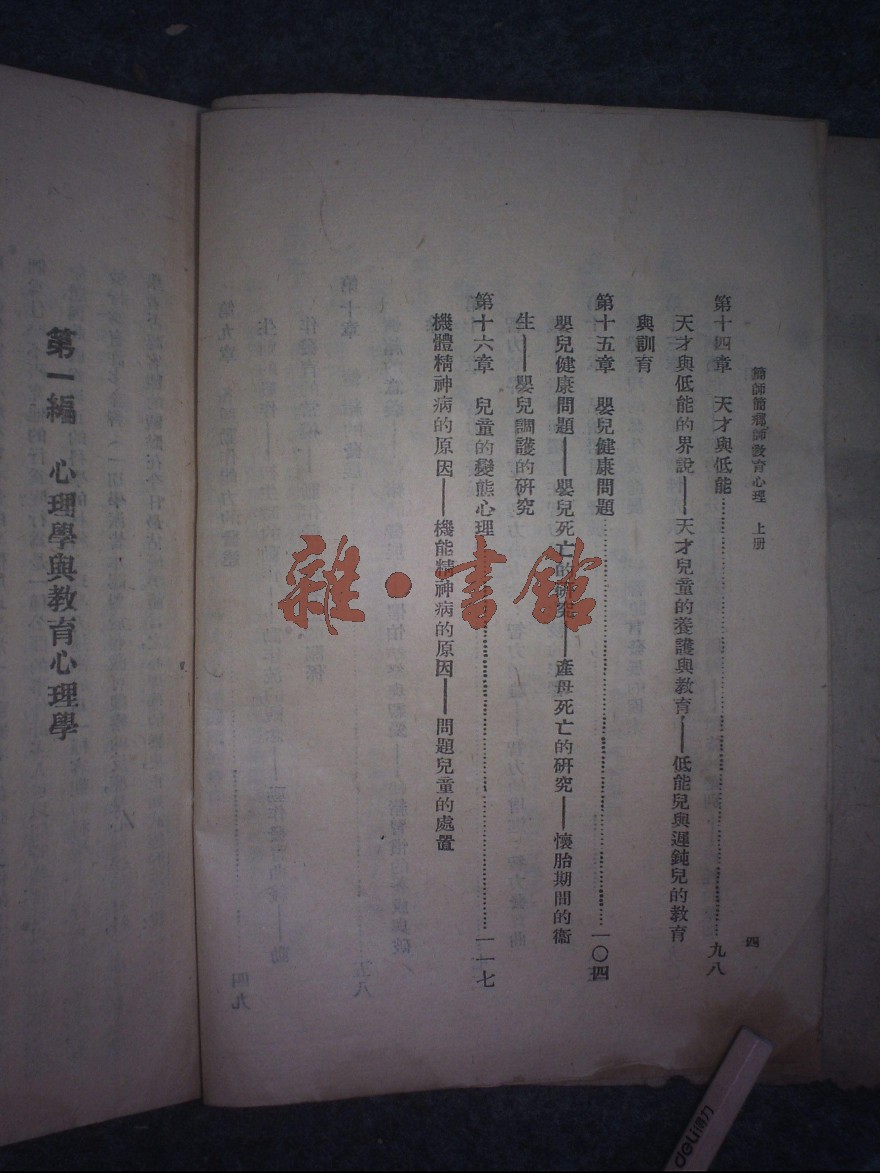 簡師簡鄉師教育心理　上册
四
第十四章　天才與低能……九八
天才與低能的界說——天才兒童的養護與教育——低能兒與遲鈍兒的教育
與訓育
第十五章　嬰兒健康問題……一〇四
嬰兒健康問題——嬰兒死亡的研究——產母死亡的研究——懷胎期間的衞
生——嬰兒調護的研究
第十六章　兒童的變態心理……一一七
機體精神病的原因——機能精神病的原因——問題兒童的處置
第一編　心理學與教育心理學
雜·書館
deli得力